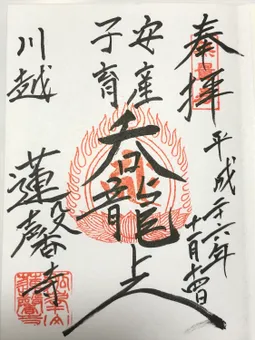 奉拝
平成二十六年
十月十四日
安産
子育
呑龍上人
川越
蓮馨寺